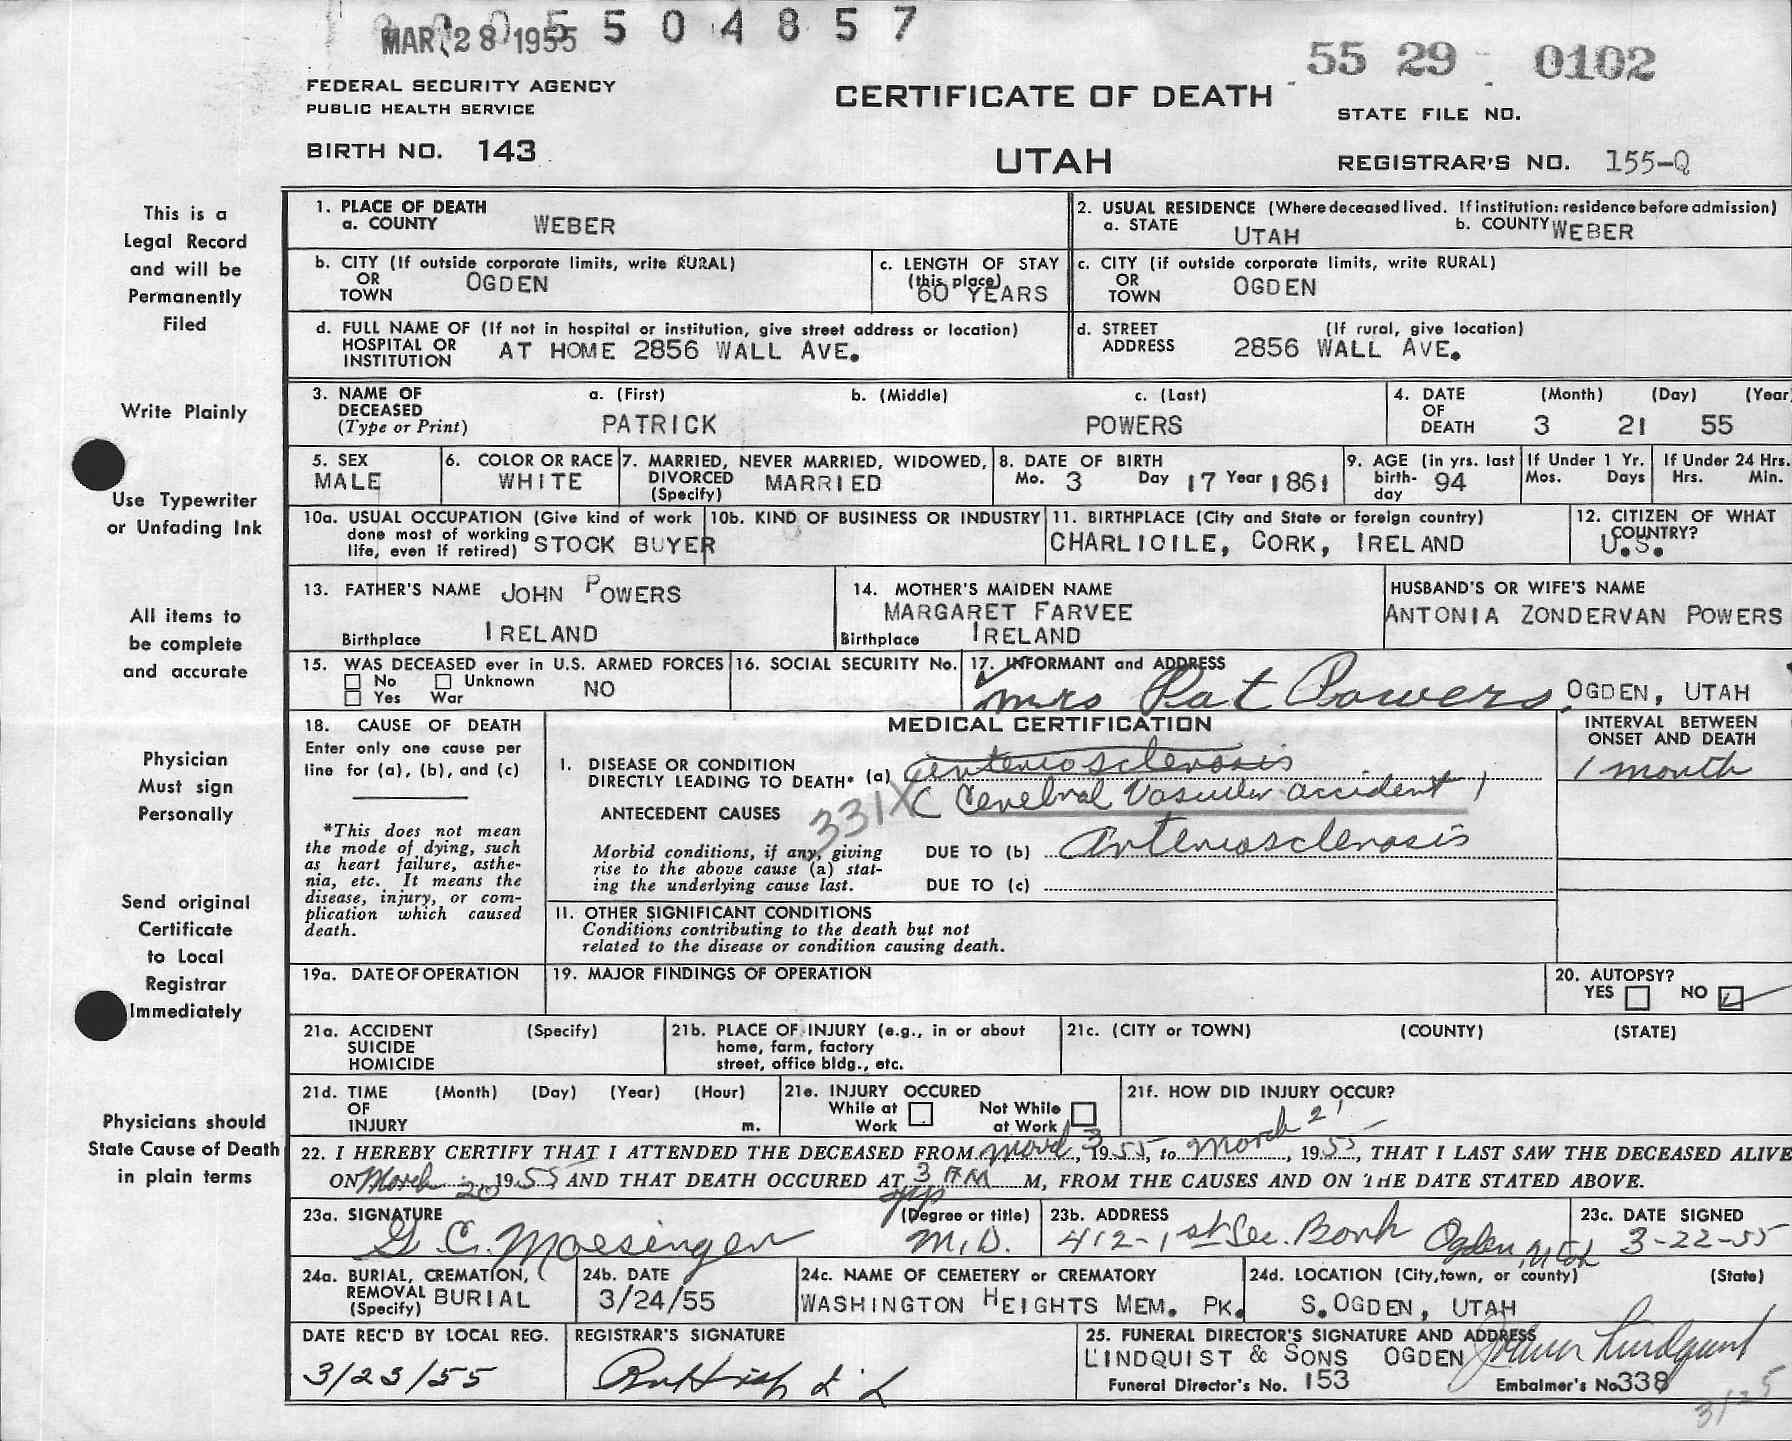 MAR 28 1955 5 0 4 8 5 7
55 29 0102
FEDERAL SECURITY AGENCY
PUBLIC HEALTH SERVICE
CERTIFICATE OF DEATH
STATE FILE NO.
BIRTH NO. 143
UTAH
REGISTRAR'S NO. 155-Q
This is a
Legal Record
and will be
Permanently
Filed
Write Plainly
Use Typewriter
or Unfading Ink
All items to
be complete
and accurate
Physician
Must sign
Personally
Send original
Certificate
to Local
Registrar
Immediately
Physicians should
State Cause of Death
in plain terms
1. PLACE OF DEATH
a. COUNTY WEBER
2. USUAL RESIDENCE (Where deceased lived. If institution: residence before admission)
a. STATE UTAH b. COUNTY WEBER
b. CITY (If outside corporate limits, write RURAL)
OR
TOWN OGDEN
c. LENGTH OF STAY
(this place)
60 YEARS
c. CITY (if outside corporate limits, write RURAL)
OR
TOWN OGDEN
d. FULL NAME OF (If not in hospital or institution, give street address or location)
HOSPITAL OR
INSTITUTION AT HOME 2856 WALL AVE.
d. STREET (If rural, give location)
ADDRESS 2856 WALL AVE.
3. NAME OF a. (First) b. (Middle) c. (Last)
DECEASED
(Type or Print) PATRICK POWERS
4. DATE (Month) (Day) (Year
OF
DEATH 3 21 55
5. SEX
MALE
6. COLOR OR RACE
WHITE
7. MARRIED, NEVER MARRIED, WIDOWED,
DIVORCED MARRIED
(Specify)
8. DATE OF BIRTH
Mo. 3 Day 17 Year 1861
9. AGE (in yrs. last
birth- 94
day
If Under 1 Yr.
Mos. Days
If Under 24 Hrs.
Hrs. Min.
10a. USUAL OCCUPATION (Give kind of work
done most of working
life, even if retired) STOCK BUYER
10b. KIND OF BUSINESS OR INDUSTRY
11. BIRTHPLACE (City and State or foreign country)
CHARLICILE, CORK, IRELAND
12. CITIZEN OF WHAT
COUNTRY?
U.S.
13. FATHER'S NAME JOHN POWERS
Birthplace IRELAND
14. MOTHER'S MAIDEN NAME
MARGARET FARVEE
Birthplace IRELAND
HUSBAND'S OR WIFE'S NAME
ANTONIA ZONDERVAN POWERS
15. WAS DECEASED ever in U.S. ARMED FORCES
No Unknown NO
Yes War
16. SOCIAL SECURITY No.
17. INFORMANT and ADDRESS
Mrs Pat Powers OGDEN, UTAH
18. CAUSE OF DEATH
Enter only one cause per
line for (a), (b), and (c)
*This does not mean
the mode of dying, such
as heart failure, asthe-
nia, etc. It means the
disease, injury, or com-
plication which caused
death.
MEDICAL CERTIFICATION
INTERVAL BETWEEN
ONSET AND DEATH
1 month
I. DISEASE OR CONDITION
DIRECTLY LEADING TO DEATH* (a) arteriosclerosis
Cerebral Vascular accident
ANTECEDENT CAUSES 331X
Morbid conditions, if any, giving
rise to the above cause (a) stat-
ing the underlying cause last.
DUE TO (b) Arteriosclerosis
DUE TO (c)
II. OTHER SIGNIFICANT CONDITIONS
Conditions contributing to the death but not
related to the disease or condition causing death.
19a. DATE OF OPERATION
19. MAJOR FINDINGS OF OPERATION
20. AUTOPSY?
YES NO
21a. ACCIDENT (Specify)
SUICIDE
HOMICIDE
21b. PLACE OF INJURY (e.g., in or about
home, farm, factory
street, office bldg., etc.
21c. (CITY or TOWN) (COUNTY) (STATE)
21d. TIME (Month) (Day) (Year) (Hour)
OF
INJURY m.
21e. INJURY OCCURED
While at Not While
Work at Work
21f. HOW DID INJURY OCCUR?
22. I HEREBY CERTIFY THAT I ATTENDED THE DECEASED FROM March 3, 1955, to March 21, 1955, THAT I LAST SAW THE DECEASED ALIVE
ON March 20 1955 AND THAT DEATH OCCURED AT 3 AM M, FROM THE CAUSES AND ON THE DATE STATED ABOVE.
23a. SIGNATURE (Degree or title)
G. C. Moesinger M.D.
23b. ADDRESS
412-1st Sec. Bank Ogden, Utah
23c. DATE SIGNED
3-22-55
24a. BURIAL, CREMATION,
REMOVAL BURIAL
(Specify)
24b. DATE
3/24/55
24c. NAME OF CEMETERY or CREMATORY
WASHINGTON HEIGHTS MEM. PK.
24d. LOCATION (City, town, or county) (State)
S. OGDEN, UTAH
DATE REC'D BY LOCAL REG.
3/23/55
REGISTRAR'S SIGNATURE
25. FUNERAL DIRECTOR'S SIGNATURE AND ADDRESS
LINDQUIST & SONS OGDEN
Funeral Director's No. 153 Embalmer's No 338